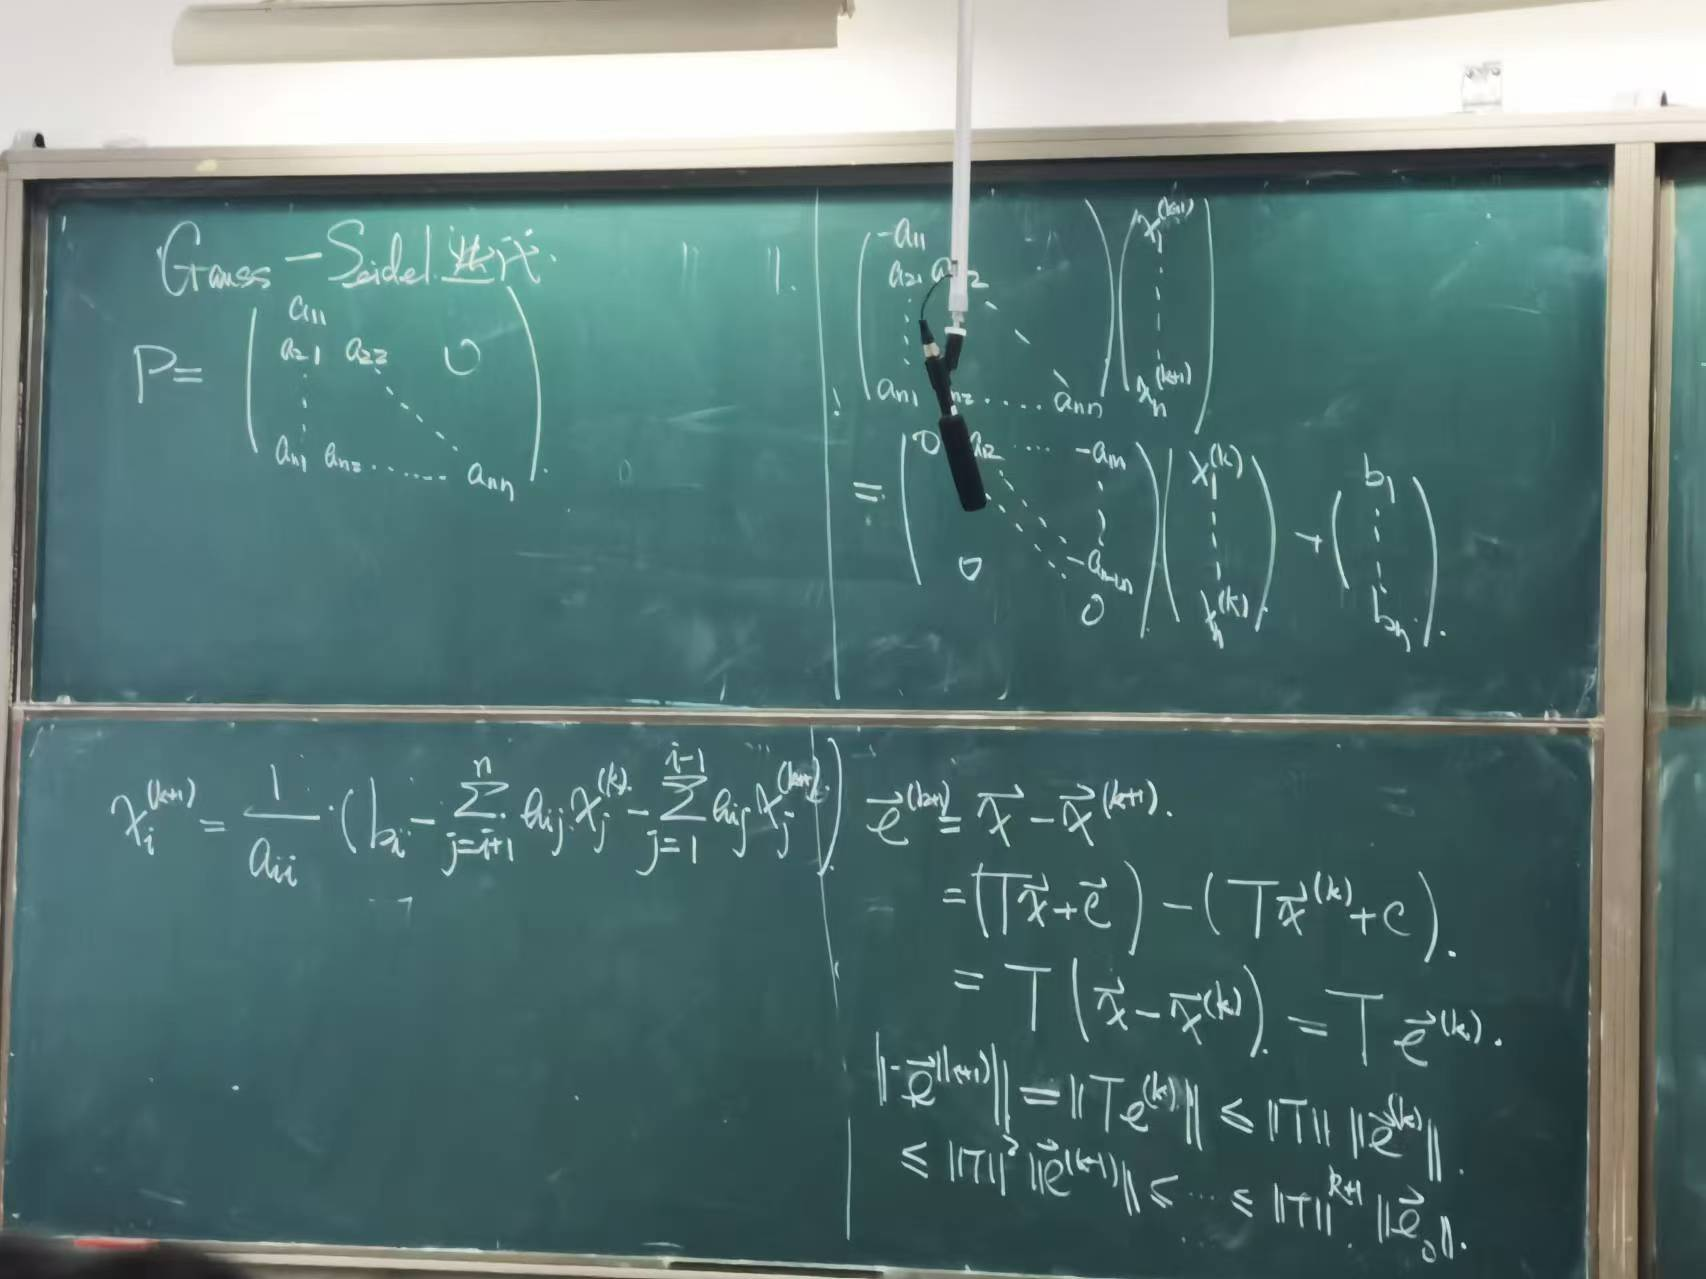 Gauss-Seidel 迭代.
P = ( a11
a21 a22 0
⋮ ⋱
an1 an2 ...... ann ).
( -a11
a21 a 2
⋮ ⋱
an1 n2 ..... ann ) ( x1^(k+1) ⋮ xn^(k+1) )
= ( 0 a12 ... -a1n
⋱ ⋮
0 -an-1n
0 ) ( x1^(k) ⋮ xn^(k) ) + ( b1 ⋮ bn ).
xi^(k+1) = 1/aii · ( bi - ∑_{j=i+1}^{n} aij xj^(k) - ∑_{j=1}^{i-1} aij xj^(k+1) )
e⃗^(k+1) = x⃗ - x⃗^(k+1).
= (Tx⃗ + c⃗) - (Tx⃗^(k) + c).
= T (x⃗ - x⃗^(k)). = T e⃗^(k).
||e⃗^(k+1)|| = ||Te^(k)|| ≤ ||T|| ||e⃗^(k)||.
≤ ||T||^2 ||e⃗^(k-1)|| ≤ ... ≤ ||T||^{k+1} ||e⃗_0||.